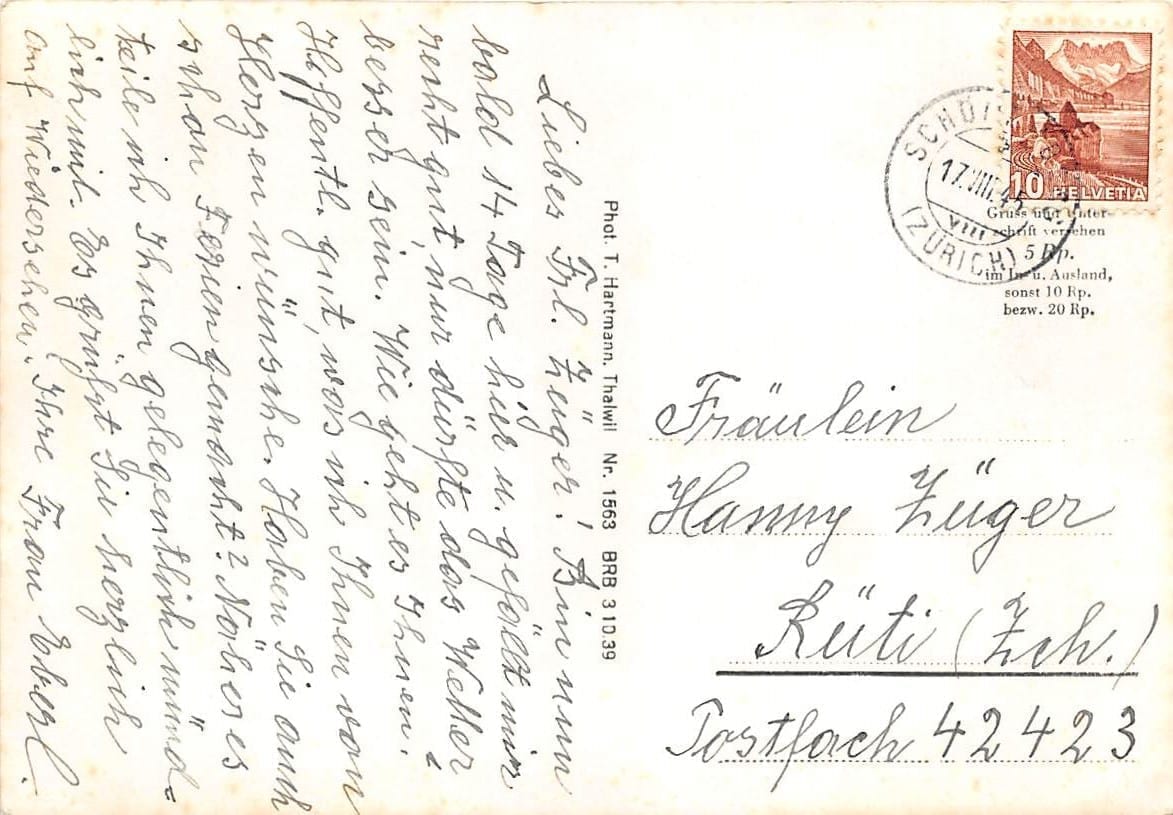 Liebes Frl. Züger! Bin nun
bald 14 Tage hier u. gefällt mir
recht gut, nur dürfte das Wetter
besser sein. Wie geht es Ihnen.
Hoffentl. gut, was ich Ihnen von
Herzen wünsche. Haben Sie auch
schon Ferien gemacht? Näheres
teile ich Ihnen gelegentlich münd-
lich mit. Es grüsst Sie herzlich
auf Wiedersehen. Ihre Frau Eberl.
Phot. T. Hartmann. Thalwil Nr. 1563 BRB 3.10.39
10 HELVETIA
17.VIII.45
VIII
(ZÜRICH)
Gruss und Unter-
schrift versehen
5 Rp.
im In- u. Ausland,
sonst 10 Rp.
bezw. 20 Rp.
Fräulein
Hanny Züger
Rüti (Zch.)
Postfach 42423